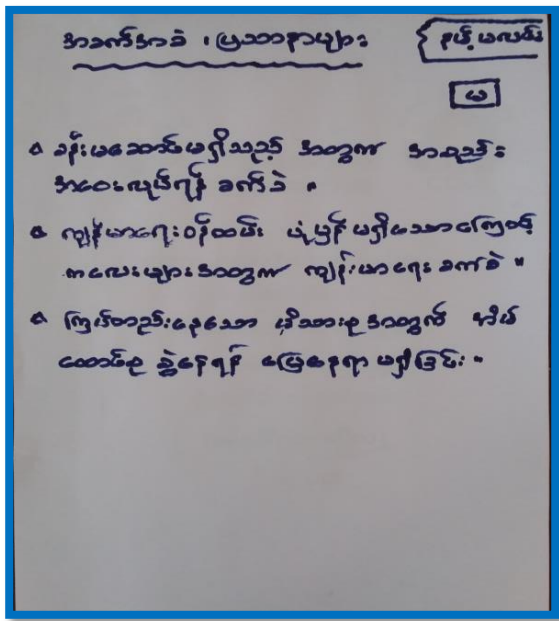 အခက်အခဲ ၊ ပြဿနာများ
နမ့်မလင်း
မ
ခန်းမဆောင်မရှိသည့် အတွက် အစည်း
အဝေးလုပ်ရန် ခက်ခဲ ။
ကျန်းမာရေးဝန်ထမ်း ပုံမှန်မရှိသောကြောင့်
ကလေးများအတွက် ကျန်းမာရေး ခက်ခဲ ။
ကြပ်တည်းနေသော မိသားစုအတွက် အိမ်
ထောင်စု ခွဲနေရန် မြေနေရာ မရှိခြင်း ။